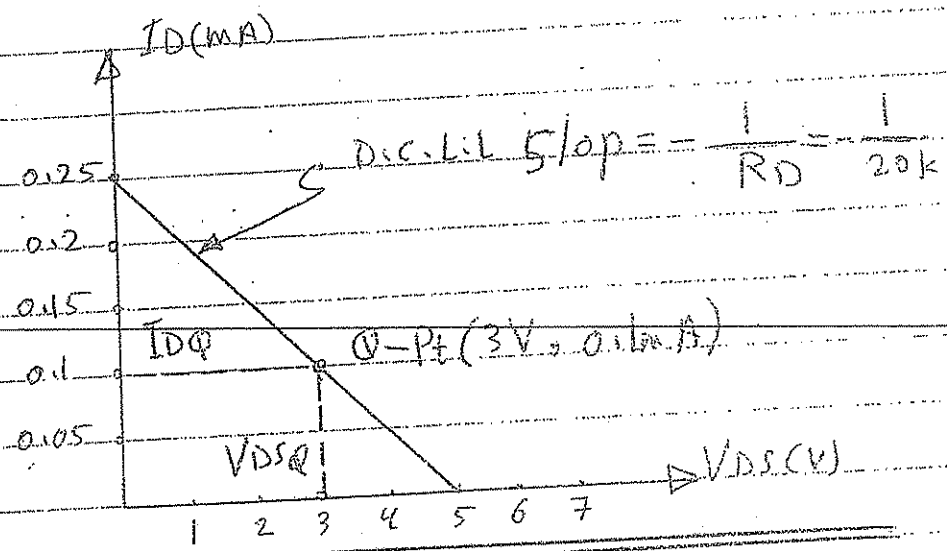 ID(mA)
D.C.L.L Slop = - 1/RD = - 1/20k
0.25
0.2
0.15
IDQ Q-Pt (3V, 0.1mA)
0.1
0.05
VDSQ
VDS(V)
1 2 3 4 5 6 7